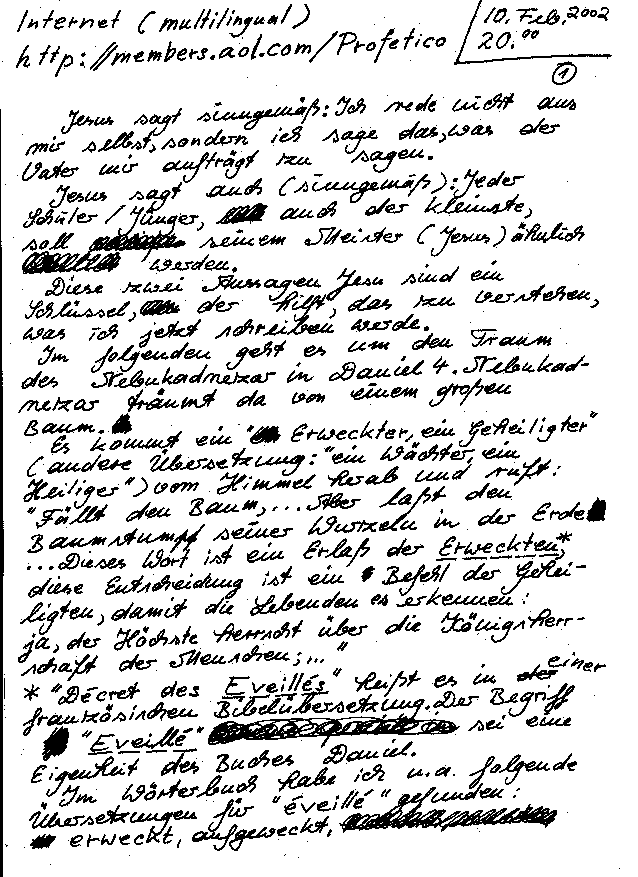 Internet (multilingual)
http://members.aol.com/Profetico
10. Feb. 2002
20.00
1
Jesus sagt sinngemäß: Ich rede nicht aus
mir selbst, sondern ich sage das, was der
Vater mir aufträgt zu sagen.
Jesus sagt auch (sinngemäß): Jeder
Schüler / Jünger, auch der kleinste,
soll seinem Meister (Jesus) ähnlich
werden.
Diese zwei Aussagen Jesu sind ein
Schlüssel, der hilft, das zu verstehen,
was ich jetzt schreiben werde.
Im folgenden geht es um den Traum
des Nebukadnezar in Daniel 4. Nebukad-
nezar träumt da von einem großen
Baum.
Es kommt ein "Erweckter, ein Geheiligter"
(andere Übersetzung: "ein Wächter, ein
Heiliger") vom Himmel herab und ruft:
"Fällt den Baum, ... Aber laßt den
Baumstumpf seiner Wurzeln in der Erde
... Dieses Wort ist ein Erlaß der Erweckten*,
diese Entscheidung ist ein Befehl der Gehei-
ligten, damit die Lebenden es erkennen:
ja, der Höchste herrscht über die Königsherr-
schaft der Menschen; ..."
* "Décret des Eveillés" heißt es in einer
französischen Bibelübersetzung. Der Begriff
"Eveillé" sei eine
Eigenheit des Buches Daniel.
Im Wörterbuch habe ich u.a. folgende
Übersetzungen für "éveillé" gefunden:
erweckt, aufgeweckt,